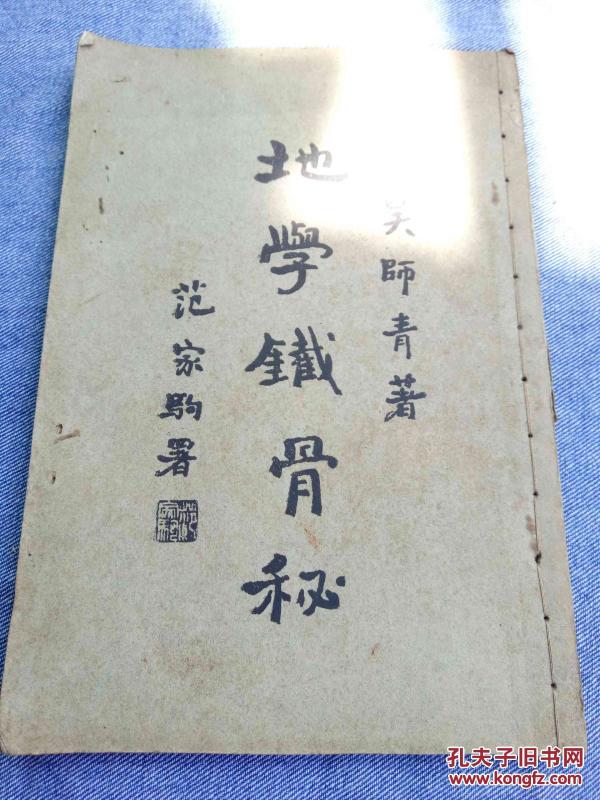 吴師青著
地學鐵骨秘
范家駒署
孔夫子旧书网
www.kongfz.com